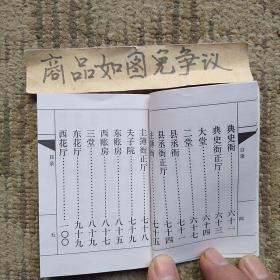 商品如图免争议
目录
四
典史衙……六十二
典史衙正厅……六十三
大堂……六十四
二堂……六十七
县丞衙……七十四
县丞衙正厅……七十五
主簿衙正厅……七十八
夫子院……七十九
东账房……八十五
西账房……八十七
三堂……八十九
东花厅……九十九
西花厅……一〇〇
目录
五